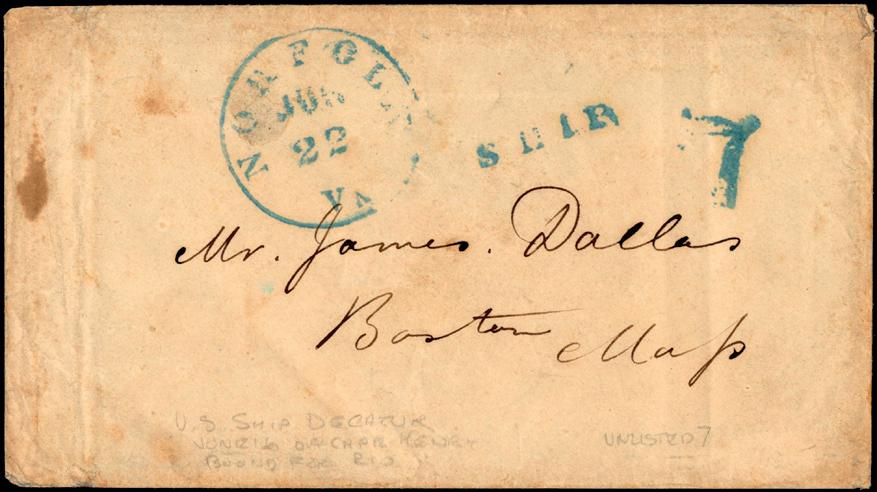 NORFOLK
JUN
22
VA
SHIP
7
Mr. James. Dallas
Boston
Mass
U.S. SHIP DECATUR
OFF CAPE HENRY
BOUND FOR RIO
UNLISTED 7